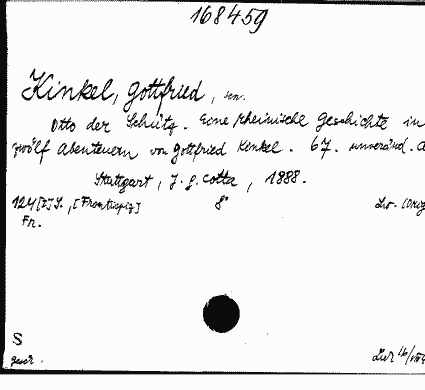 168459
Kinkel, Gottfried, sen.
Otto der Schütz. Eine rheinische Geschichte in
zwölf Abenteuern von Gottfried Kinkel. 67. unveränd. A
Stuttgart, J. G. Cotta, 1888.
124 [2] S., [Frontispiz] 8° Lw. (Orig
Fr.
S